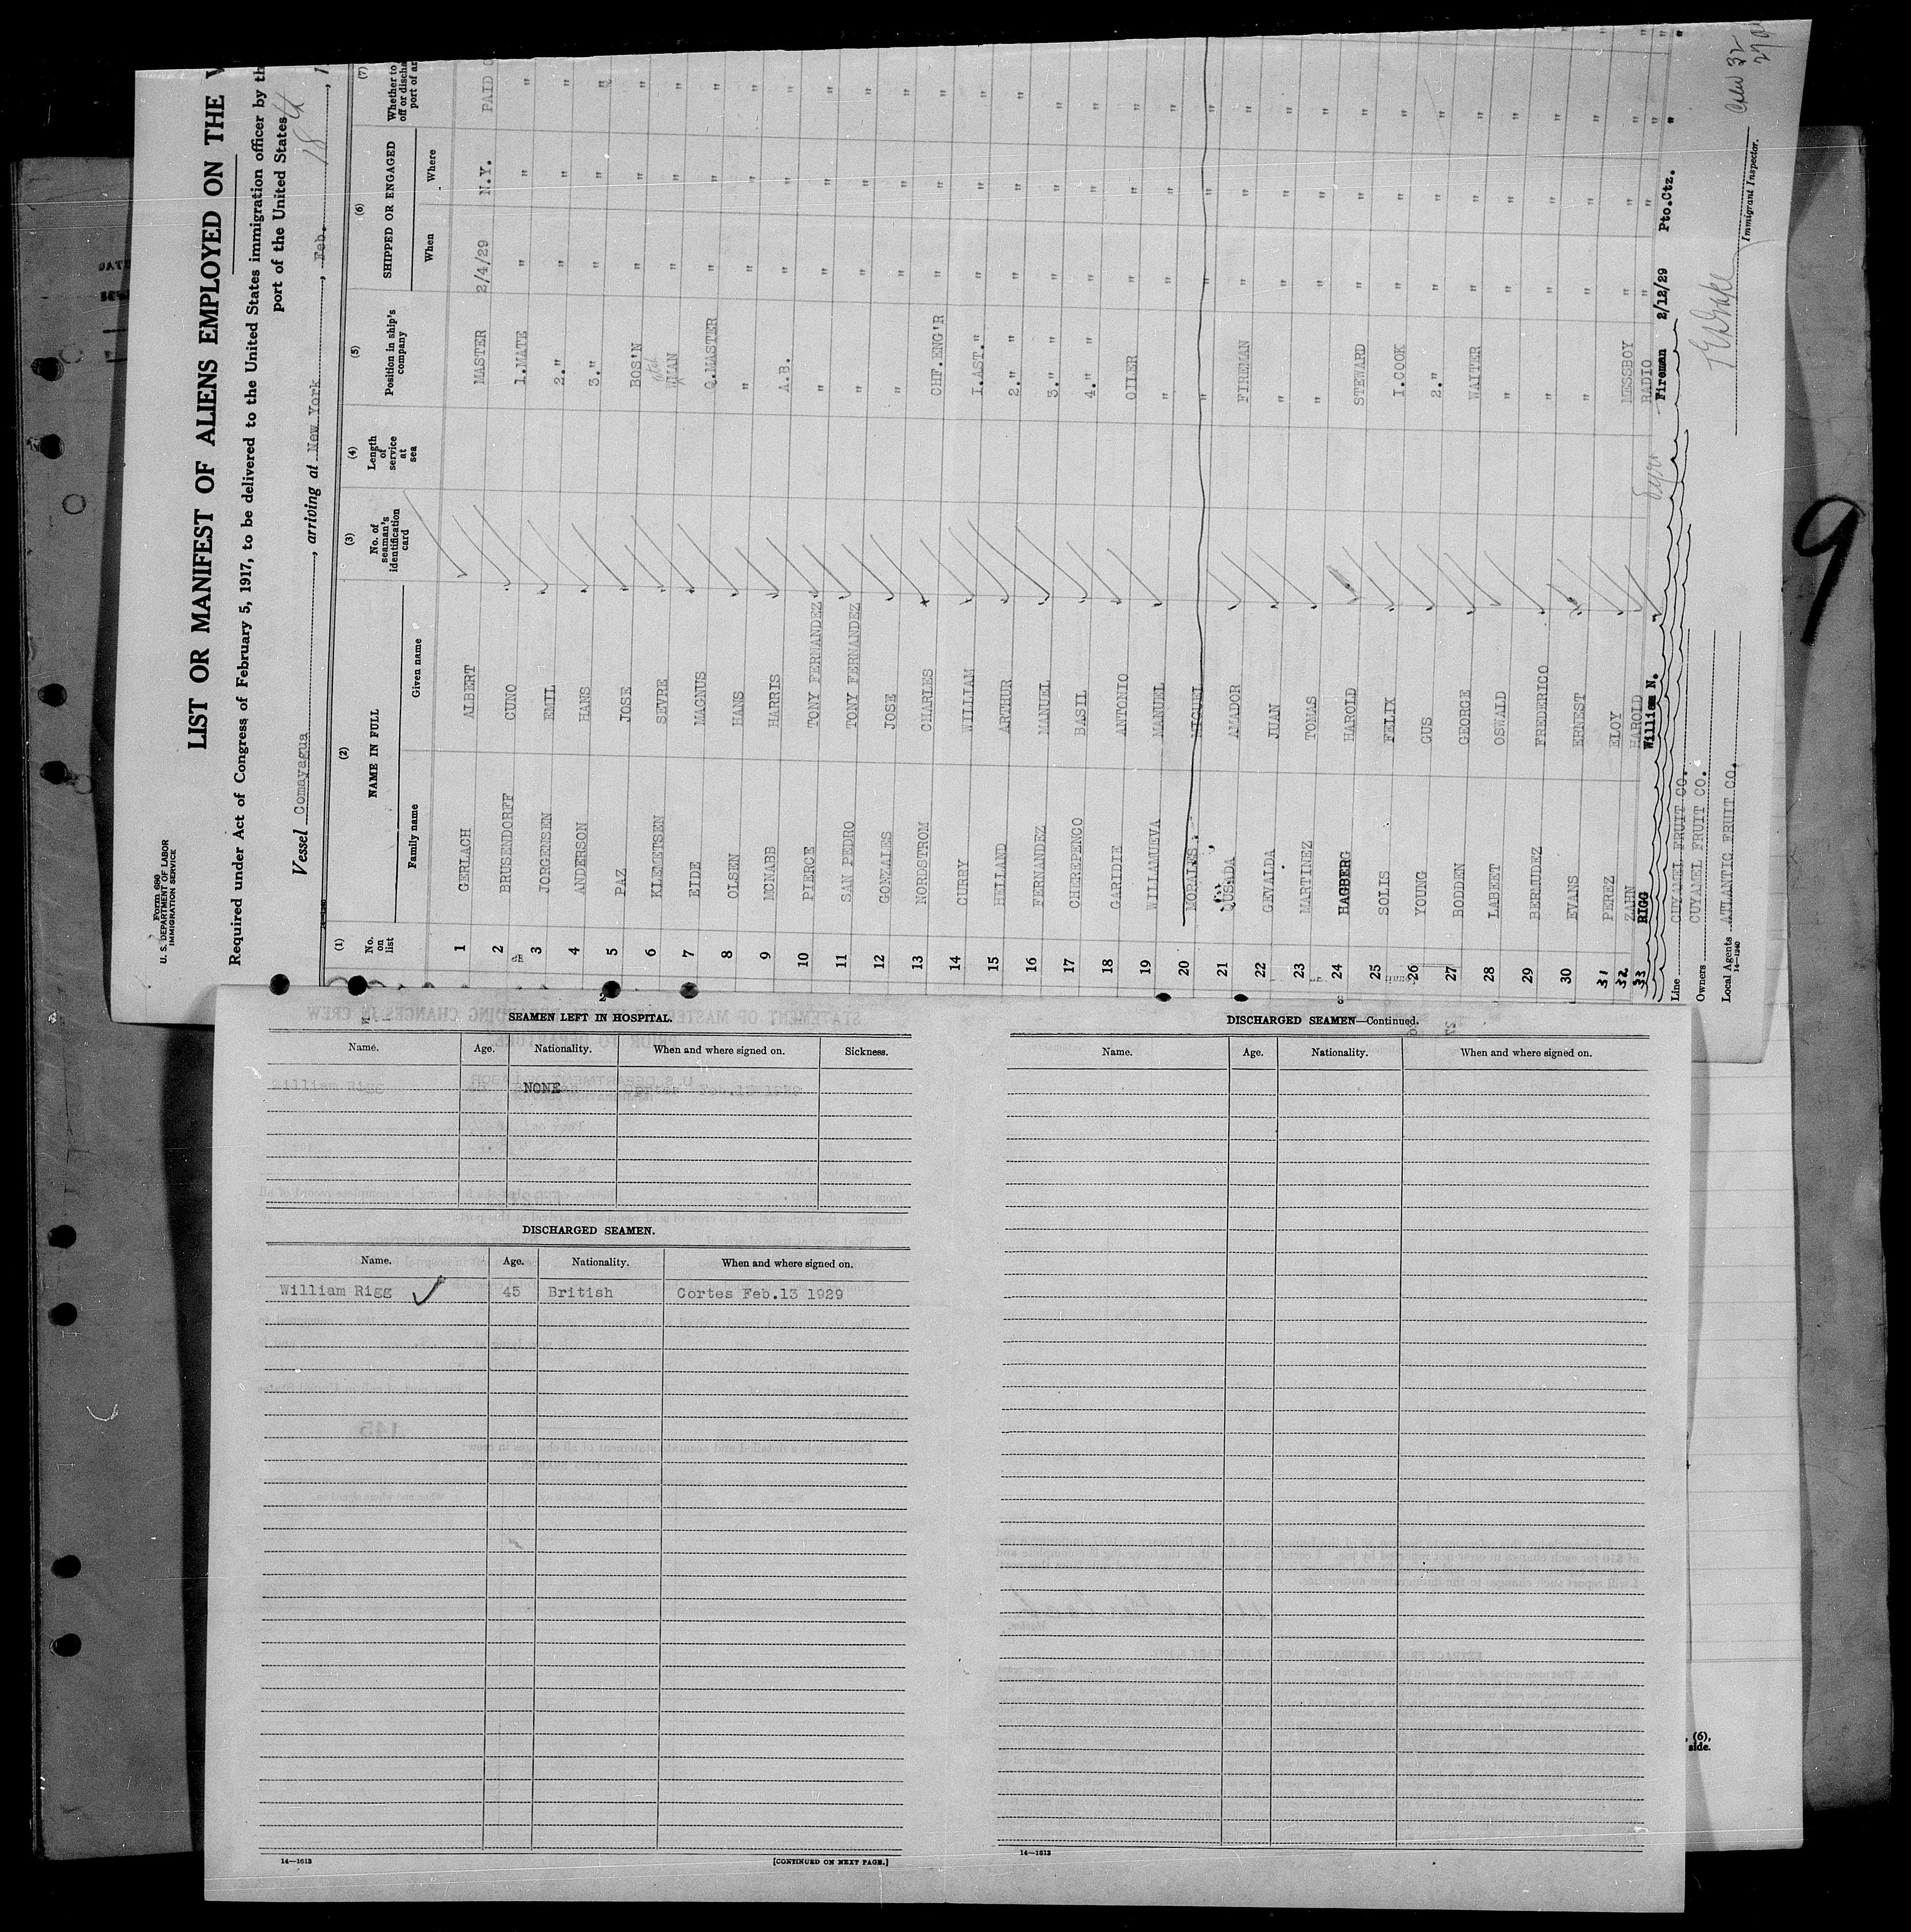 Form 680
U. S. DEPARTMENT OF LABOR
IMMIGRATION SERVICE
LIST OR MANIFEST OF ALIENS EMPLOYED ON THE
Required under Act of Congress of February 5, 1917, to be delivered to the United States immigration officer by th
port of the United States
Vessel Comayagua, arriving at New York, Feb. 18th
(1) (2) (3) (4) (5) (6) (7)
No. on list
NAME IN FULL
Family name Given name
No. of seaman's identification card
Length of service at sea
Position in ship's company
SHIPPED OR ENGAGED
When Where
Whether to
off or discha
port of ar
1 GERLACH ALBERT MASTER 2/4/29 N.Y. PAID O
2 BRUSENDORFF CUNO 1.MATE " " "
3 JORGENSEN EMIL 2." " " "
4 ANDERSON HANS 3." " " "
5 PAZ JOSE BOS'N " " "
6 KLEMETSEN SEVRE MAN " " "
7 EIDE MAGNUS Q.MASTER " " "
8 OLSEN HANS " " " "
9 MCNABB HARRIS A.B. " " "
10 PIERCE TONY FERNANDEZ " " " "
11 SAN PEDRO TONY FERNANDEZ " " " "
12 GONZALES JOSE " " " "
13 NORDSTROM CHARLES CHF.ENG'R " " "
14 CURRY WILLIAM 1.AST." " " "
15 HELLAND ARTHUR 2." " " " "
16 FERNANDEZ MANUEL 3." " " " "
17 CHEREPENCO BASIL 4." " " " "
18 GARIDIE ANTONIO OILER " " "
19 WILLAMUEVA MANUEL " " " "
20 MORALES MIGUEL " " " "
21 QUSADA AMADOR FIREMAN " " "
22 GEVALDA JUAN " " " "
23 MARTINEZ TOMAS " " " "
24 HAGBERG HAROLD STEWARD " " "
25 SOLIS FELIX 1.COOK " " "
26 YOUNG GUS 2." " " "
27 BODDEN GEORGE WAITER " " "
28 LABEET OSWALD " " " "
29 BERMUDEZ FREDERICO " " " "
30 EVANS ERNEST " " " "
31 PEREZ ELOY MESSBOY " " "
32 ZAHN HAROLD RADIO " " "
33 RIGG William N. Fireman 2/12/29 Pto.Ctz. "
Line CUYAMEL FRUIT CO.
Owners CUYAMEL FRUIT CO.
Local Agents ATLANTIC FRUIT CO.
14-1240
Immigrant Inspector.
9
SEAMEN LEFT IN HOSPITAL.
Name. Age. Nationality. When and where signed on. Sickness.
NONE
DISCHARGED SEAMEN.
Name. Age. Nationality. When and where signed on.
William Rigg 45 British Cortes Feb.13 1929
14—1613
[CONTINUED ON NEXT PAGE.]
DISCHARGED SEAMEN—Continued.
Name. Age. Nationality. When and where signed on.
14—1613
, (6),
side.